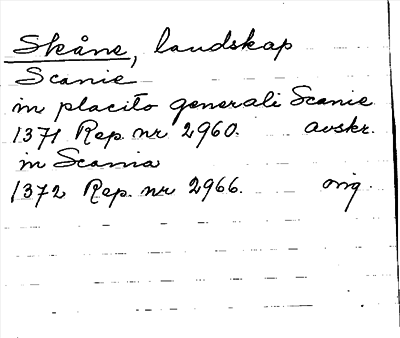 Skåne, landskap
Scanie
in placito generali Scanie
1371 Rep. nr 2960. avskr.
in Scania
1372 Rep. nr 2966. orig.